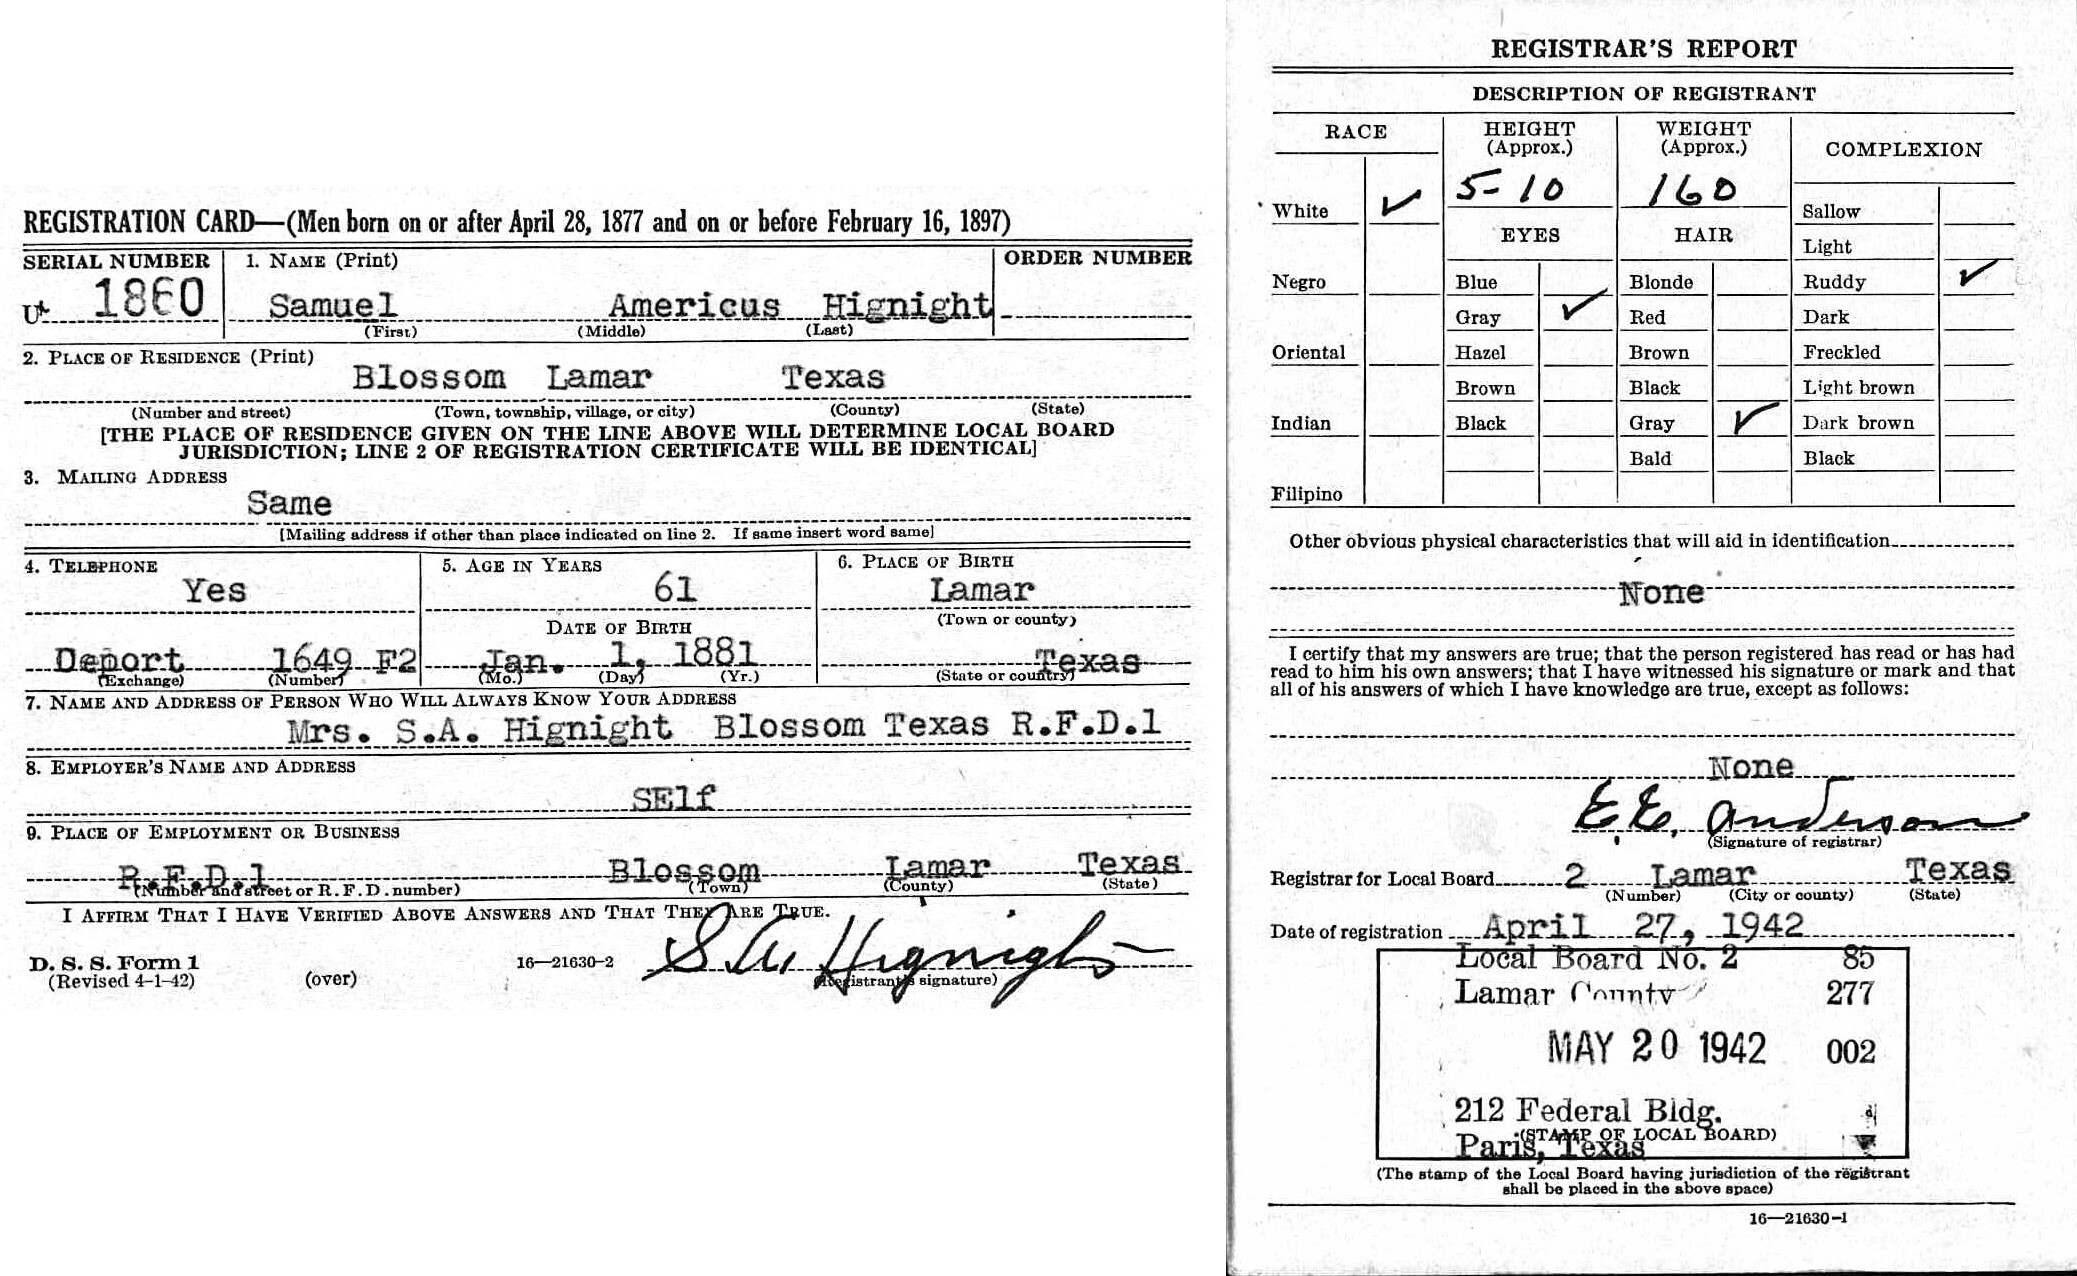 REGISTRATION CARD—(Men born on or after April 28, 1877 and on or before February 16, 1897)
SERIAL NUMBER 1. NAME (Print) ORDER NUMBER
U 1860 Samuel Americus Hignight
(First) (Middle) (Last)
2. PLACE OF RESIDENCE (Print)
Blossom Lamar Texas
(Number and street) (Town, township, village, or city) (County) (State)
[THE PLACE OF RESIDENCE GIVEN ON THE LINE ABOVE WILL DETERMINE LOCAL BOARD
JURISDICTION; LINE 2 OF REGISTRATION CERTIFICATE WILL BE IDENTICAL]
3. MAILING ADDRESS
Same
[Mailing address if other than place indicated on line 2. If same insert word same]
4. TELEPHONE 5. AGE IN YEARS 6. PLACE OF BIRTH
Yes 61 Lamar
DATE OF BIRTH (Town or county)
Deport 1649 F2 Jan. 1, 1881 Texas
(Exchange) (Number) (Mo.) (Day) (Yr.) (State or country)
7. NAME AND ADDRESS OF PERSON WHO WILL ALWAYS KNOW YOUR ADDRESS
Mrs. S.A. Hignight Blossom Texas R.F.D.1
8. EMPLOYER'S NAME AND ADDRESS
SElf
9. PLACE OF EMPLOYMENT OR BUSINESS
R.F.D.1 Blossom Lamar Texas
(Number and street or R. F. D. number) (Town) (County) (State)
I AFFIRM THAT I HAVE VERIFIED ABOVE ANSWERS AND THAT THEY ARE TRUE.
D. S. S. Form 1 16—21630-2 S. A. Hignight
(Revised 4-1-42) (over) (Registrant's signature)
REGISTRAR'S REPORT
DESCRIPTION OF REGISTRANT
RACE HEIGHT (Approx.) WEIGHT (Approx.) COMPLEXION
White ✓ 5-10 160 Sallow
EYES HAIR Light
Negro Blue Blonde Ruddy ✓
Gray ✓ Red Dark
Oriental Hazel Brown Freckled
Brown Black Light brown
Indian Black Gray ✓ Dark brown
Bald Black
Filipino
Other obvious physical characteristics that will aid in identification
None
I certify that my answers are true; that the person registered has read or has had
read to him his own answers; that I have witnessed his signature or mark and that
all of his answers of which I have knowledge are true, except as follows:
None
E.E. Anderson
(Signature of registrar)
Registrar for Local Board 2 Lamar Texas
(Number) (City or county) (State)
Date of registration April 27, 1942
Local Board No. 2 85
Lamar County 277
MAY 20 1942 002
212 Federal Bldg.
(STAMP OF LOCAL BOARD)
Paris, Texas
(The stamp of the Local Board having jurisdiction of the registrant
shall be placed in the above space)
16—21630-1